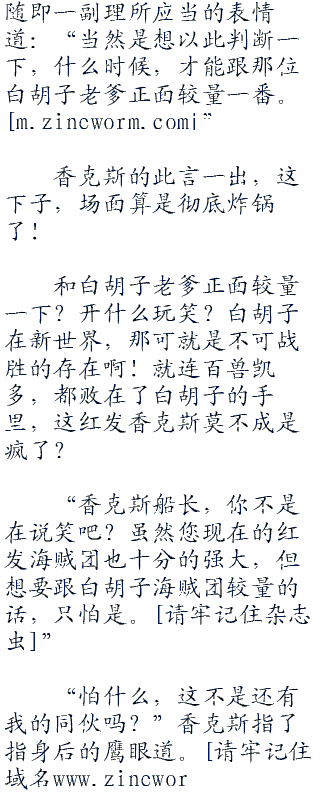 随即一副理所应当的表情
道：“当然是想以此判断一
下，什么时候，才能跟那位
白胡子老爹正面较量一番。
[m.zincworm.com|”
香克斯的此言一出，这
下子，场面算是彻底炸锅
了！
和白胡子老爹正面较量
一下？开什么玩笑？白胡子
在新世界，那可就是不可战
胜的存在啊！就连百兽凯
多，都败在了白胡子的手
里，这红发香克斯莫不成是
疯了？
“香克斯船长，你不是
在说笑吧？虽然您现在的红
发海贼团也十分的强大，但
想要跟白胡子海贼团较量的
话，只怕是。[请牢记住杂志
虫]”
“怕什么，这不是还有
我的同伙吗？”香克斯指了
指身后的鹰眼道。[请牢记住
域名www.zincwor